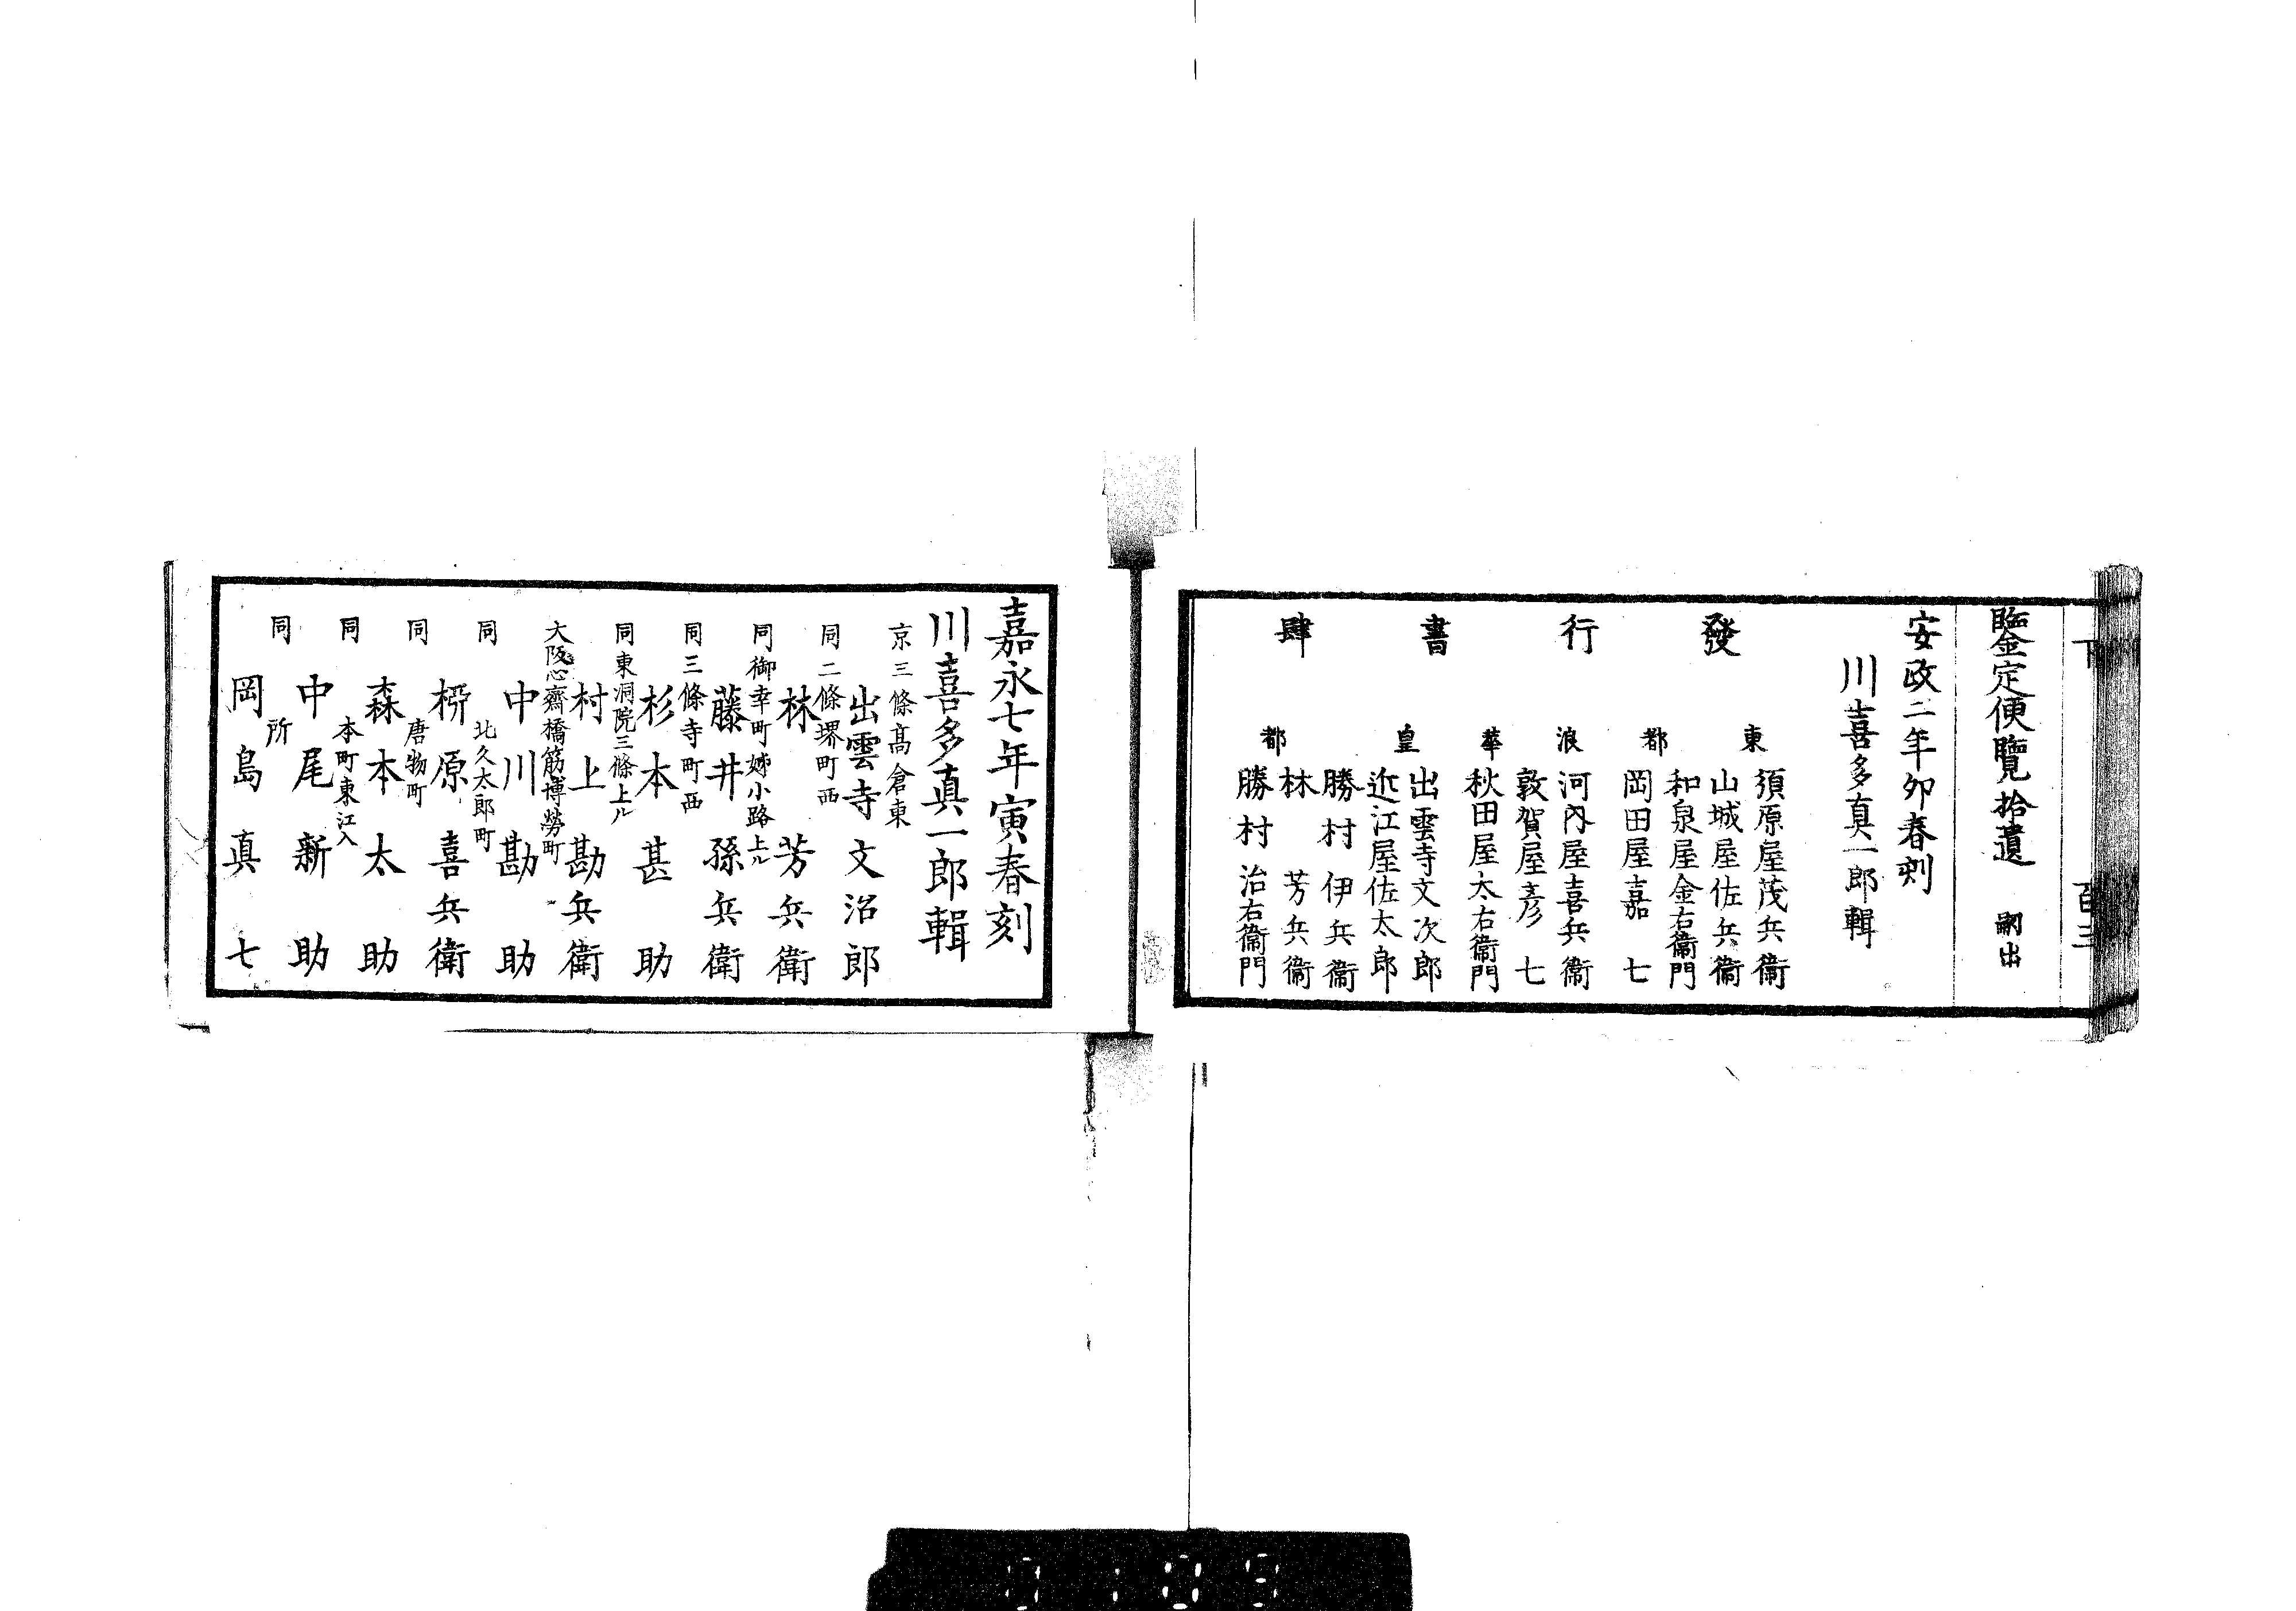 臨金定便覽拾遺　嗣出
安政二年卯春刻
川喜多真一郎輯
發行書肆
東都
須原屋茂兵衞
山城屋佐兵衞
和泉屋金右衞門
岡田屋嘉七
浪華
河內屋喜兵衞
敦賀屋彥七
秋田屋太右衞門
皇都
出雲寺文次郎
近江屋佐太郎
勝村伊兵衞
林芳兵衞
勝村治右衞門
嘉永七年寅春刻
川喜多真一郎輯
京三條髙倉東
出雲寺文治郎
同二條堺町西
林芳兵衛
同御幸町姊小路上ル
藤井孫兵衛
同三條寺町西
杉本甚助
同東洞院三條上ル
村上勘兵衛
大阪心齋橋筋博勞町
中川勘助
同北久太郎町
栁原喜兵衛
同唐物町
森本太助
同本町東江入
中尾新助
同所
岡島真七